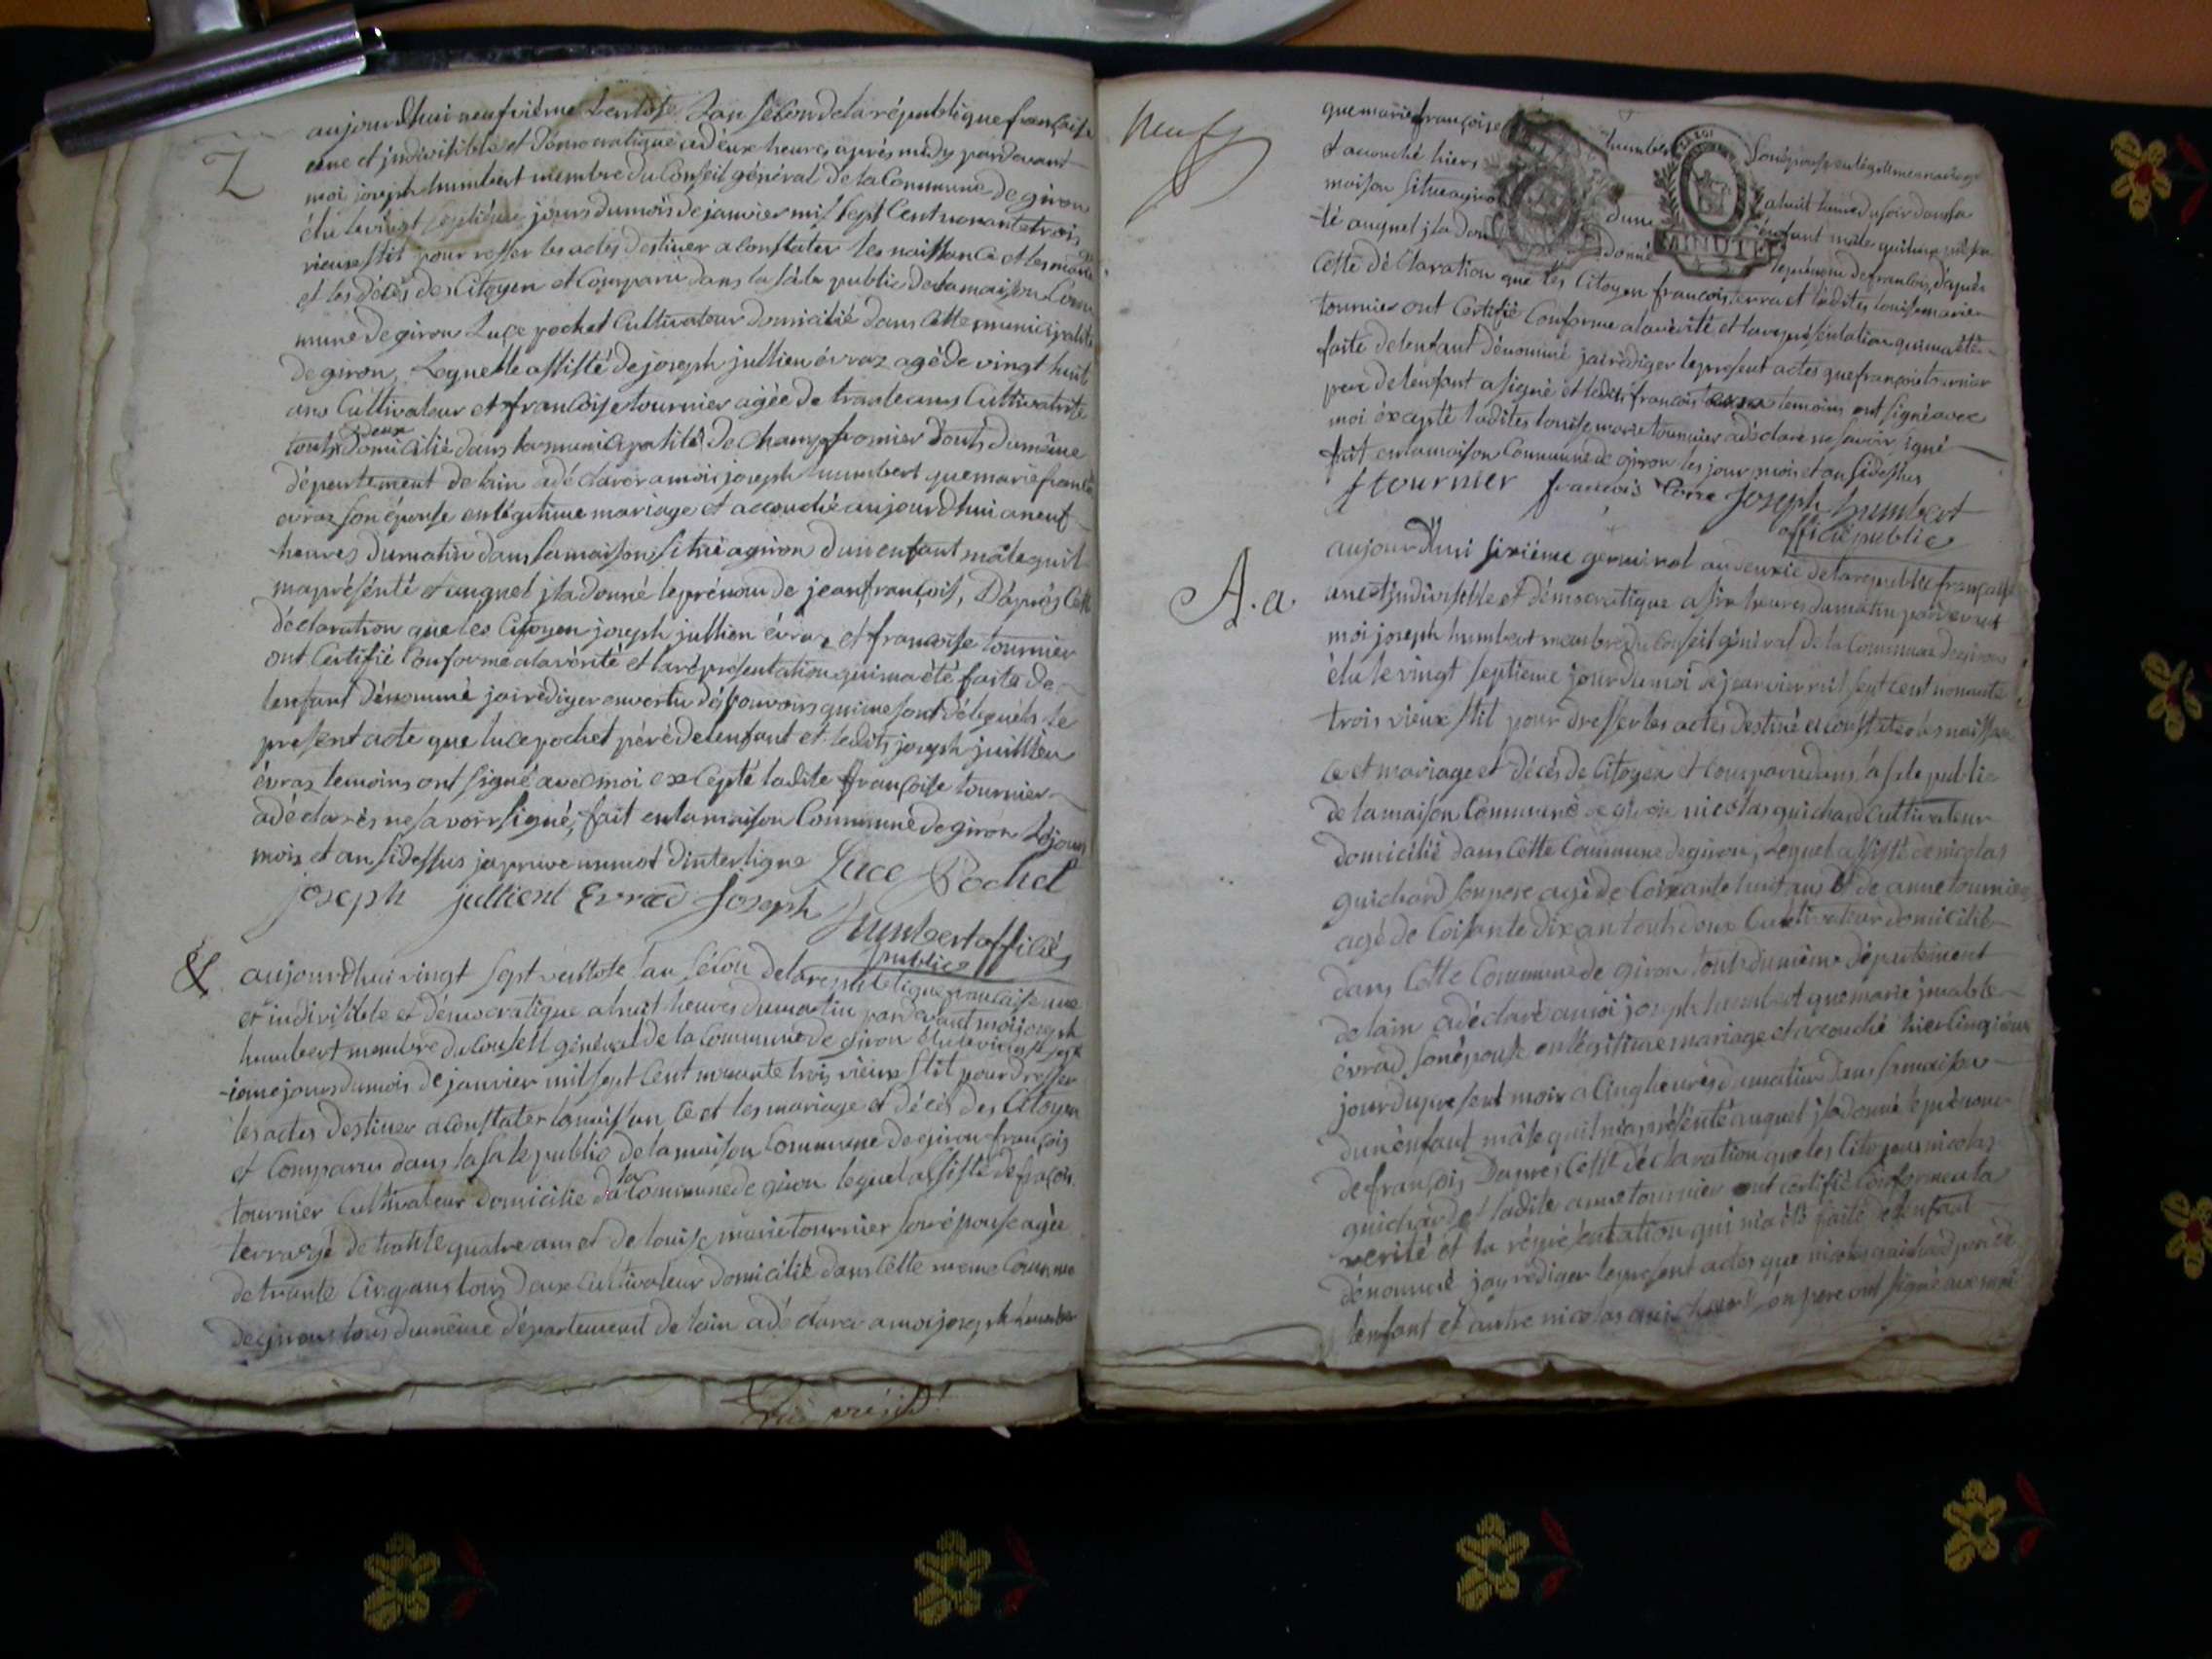 Z
aujourdhui neufvième ventose Lan second la république française
une et indivisible et démocratique a deux heures après midy pardevant
moi joseph humbert membre du Conseil général de la Commune de giron
élu le vingt septième jours du mois de janvier mil sept Cent nonante trois
vieux stil pour les actes destiner a constater les naissance et les
et les décès des Citoyen et Comparu dans la sale public de la maison Com
mune de giron Luce pochet Cultivateur domicilié dans Cette municipalité
de giron, Lequelle assisté de joseph jullien évraz agé de vingt huit
ans Cultivateur et françoise tournier agée de trante ans Cultivatrise
touts deux domicilié dans la municipalité de Champfromier touts du même
département de lain a déclarer a moi joseph humbert que marie
évraz son épouse en légitime mariage et accouché aujourdhui a neuf
heures du matin dans la maison situé a giron dun enfant mâle quil
ma présenté et auquel jl a donné le prénom de jean françois, Daprès Cette
déclaration que les Citoyen joseph jullien évraz et françoise tournier
ont Certifié Conforme a la vérité et la représentation qui ma été faite de
lenfant dénommé jai rédiger en vertu des pouvoirs qui me sont délégués le
present acte que luce pochet péré de lenfant et ledits joseph juillien
évraz temoins ont signé avec moi excepté ladite françoise tournier
a déclarés ne savoir signé, fait en la maison Commune de giron Lejour
mois et an sidessus japruve un mot dinterligne Luce Pochet
joseph jullient Evrad Joseph
humbert officié
public
&
aujourdhui vingt sept ventote lan sécon de la republique francaise une
et indivisible et démocratique a huit heures du matin pardevant moi joseph
humbert membre du Conseil général de la Commune de giron élu le vingt sept
-ieme jours du mois de janvier mil sept Cent nonante trois vieux stil pour dresser
les actes destiner a constater la naissance et les mariage et décès des Citoyen
et Comparus dans la sale public de la maison Commune de giron françois
tournier Cultivateur domicilié da la Commune de giron lequel assisté de
terra agé de trante quatre ans et de louise marie tournier son épouse agée
de trante Cinq ans tous deux Cultivateur domicilié dans Cette meme Commune
de giron tous du même département de lain a déclarer a moi joseph humbert
neuf
que marie françoise humbert son épouse en légitime mariage
et accouché hiers a huit heure du soir dans sa
maison situé a giron dune enfant mâle
-té auquel jl a donné le prénom de francois, daprès
Cette déclaration que les Citoyen francois terra et ladites louise marie
tournier ont Certifié Conforme a la vérité et la représentation qui ma été
faite de lenfant dénommé jai rédiger le present actes que françois tournier
pere de lenfant a signé et ledits francois temoins ont signé avec
moi éxcepté ladites louise marie tournier a déclaré ne savoir signé
fait en la maison Commune de giron les jour mois et an sidessus
f tournier francois terra Joseph humbert
officié public
A.a
aujourdhui sixième germinal an deuxié de la republic française
une et jndivisible et démocratique a six heures du matin pardevant
moi joseph humbert membre du Conseil général de la Commune de giron
élu le vingt septieme jour du moi de janvier mil sept cent nonante
trois vieux stil pour dresser les actes destiné a constater les naissan
ce et mariage et décès de Citoyen et Comparu dans la sale public
de la maison Commune de giron nicolas guichard Cultivateur
domicilié dans Cette Commune de giron, Lequel assisté de nicolas
guichard son pere agé de Coixante huit ans et de anne tournier
agé de Coisante dix an touts deux Cultivateur domicilié
dans Cette Commune de giron touts du même département
de lain a déclaré a moi joseph humbert que marie
évrad son épouse en légitime mariage et accouché hier
jour du present mois a Cinq heures du matin dans sa maison
dun énfant mâle quil ma présenté auquel jl a donné le prénom
de françois Dapres Cette déclaration que les Citoyens nicolas
guichard et ladite anne tournier ont certifié Conforme a la
verité et la représentation qui ma été faite enfant
dénommé jay rédiger le present actes que nicolas guichard pere de
lenfant et autre nicolas guichard son pere ont signé avec moi
MINUTE